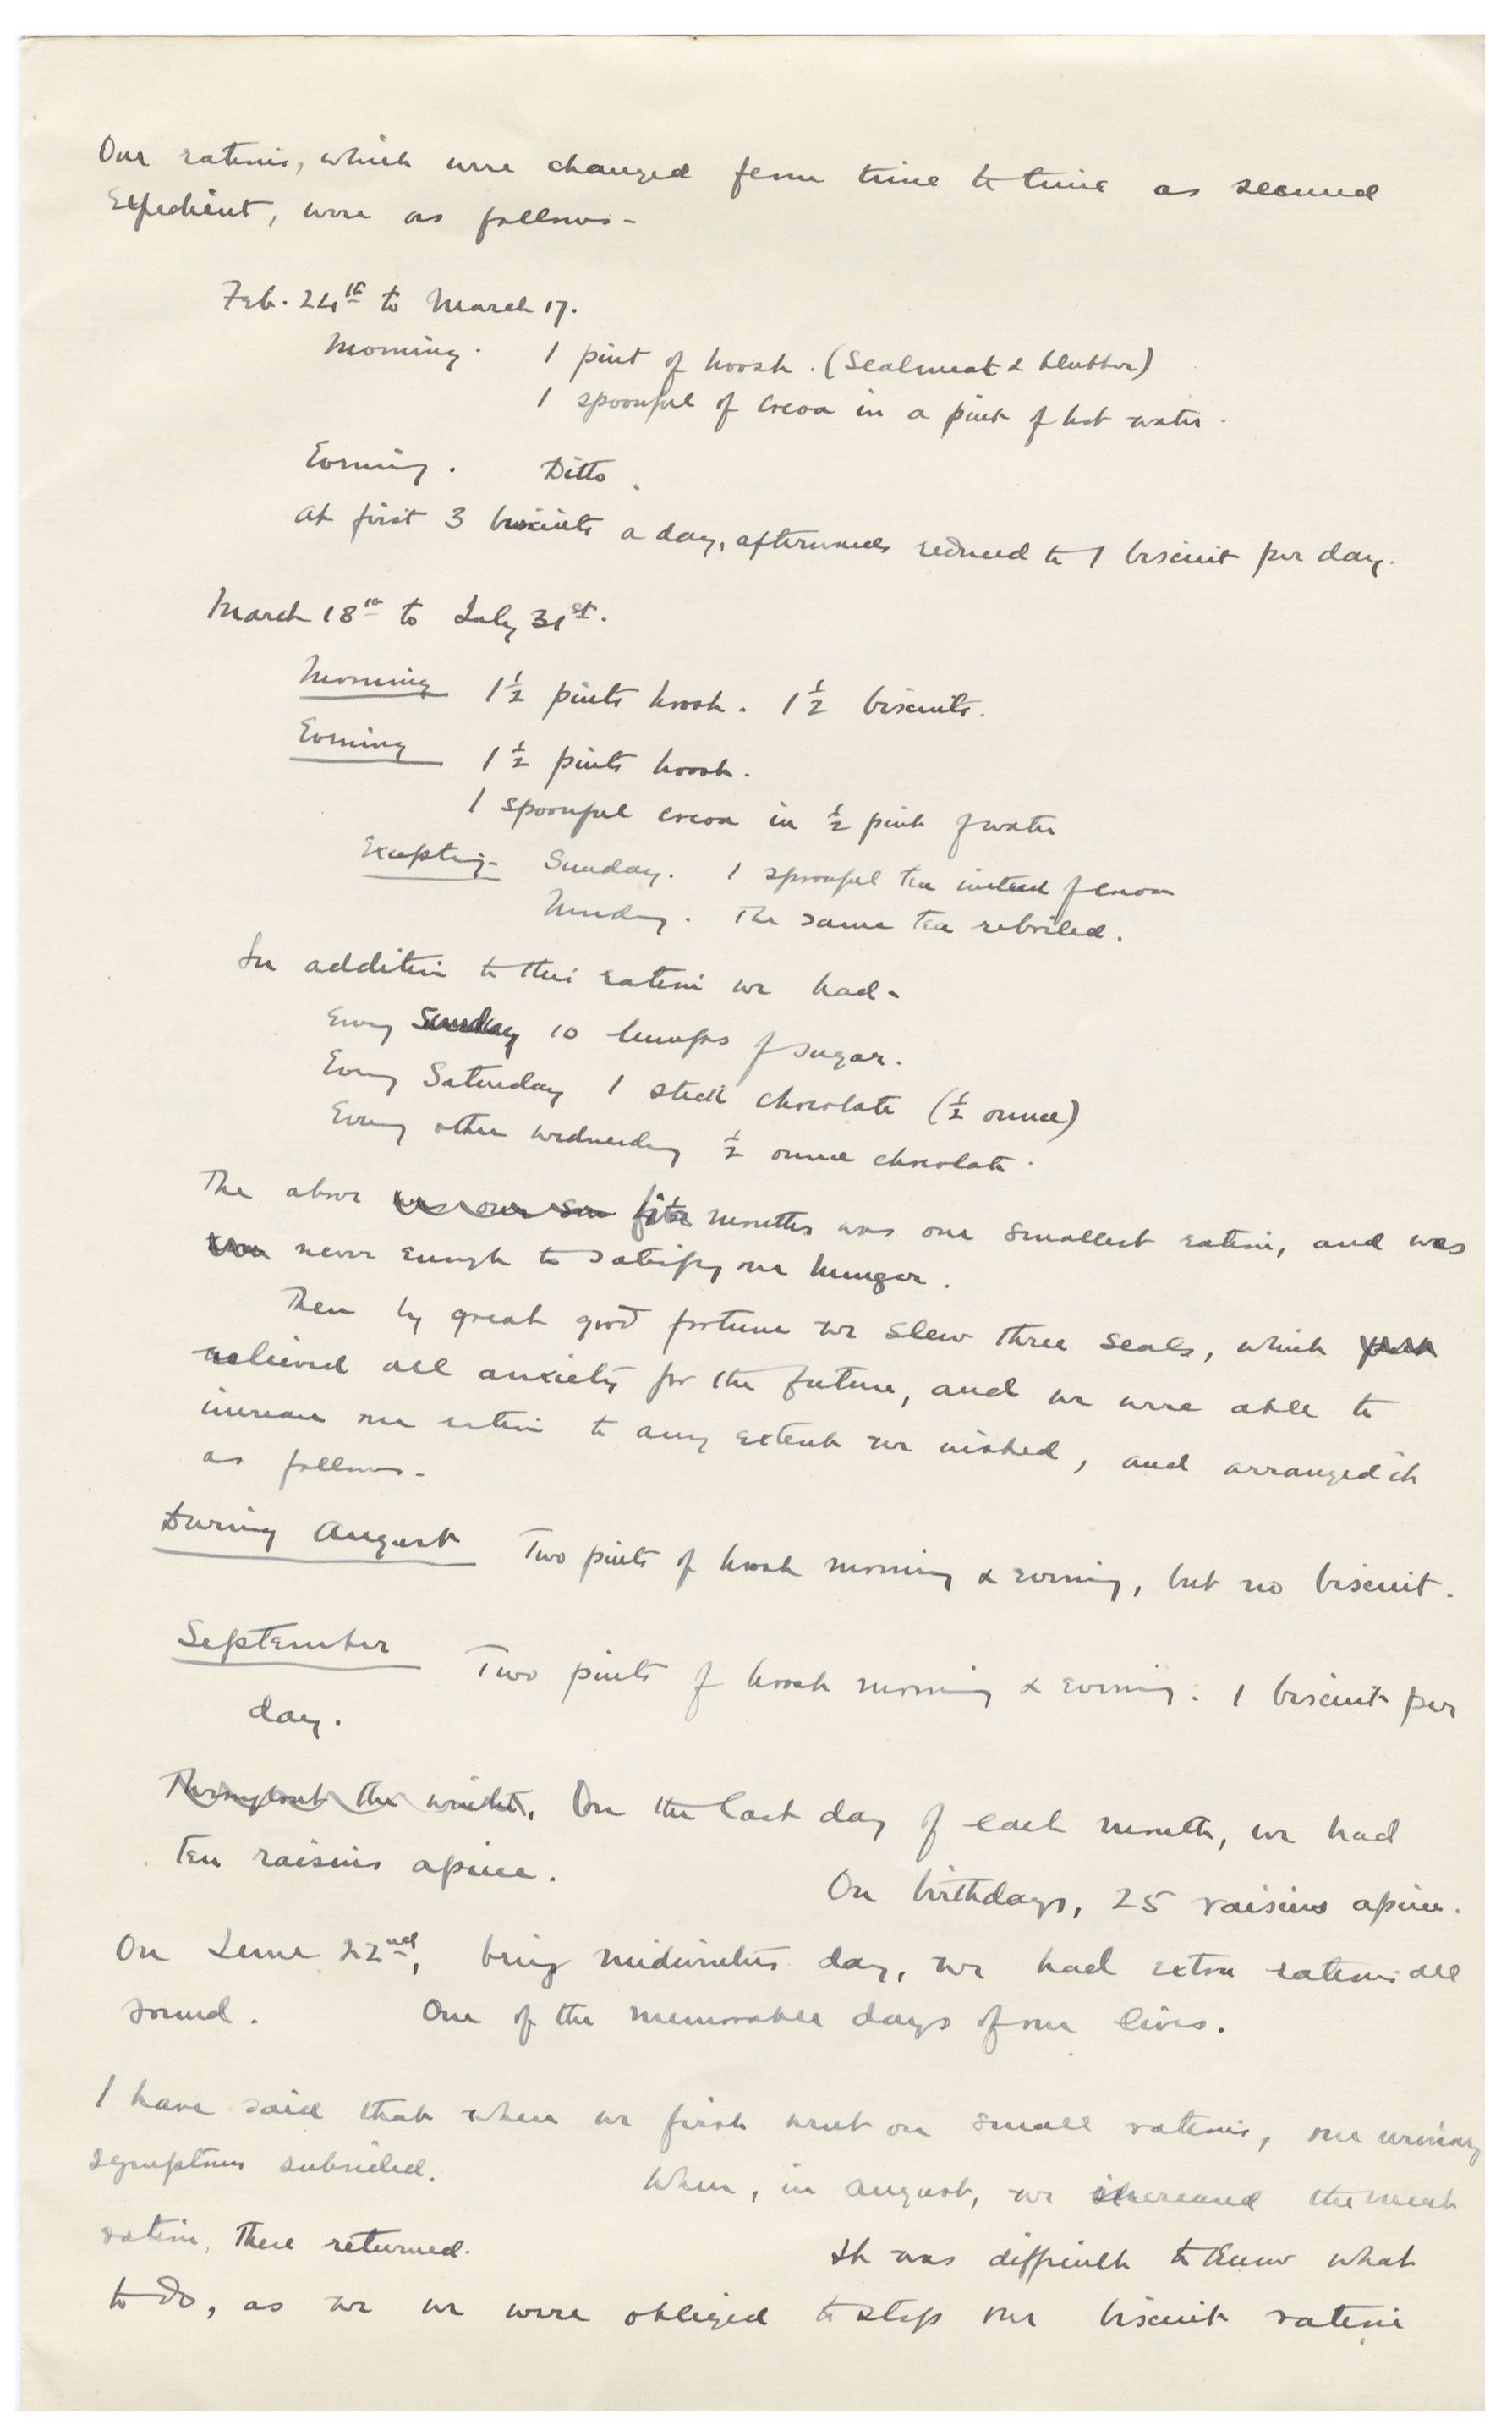 Our rations, which were changed from time to time as seemed
Expedient, were as follows -
Feb. 24th to March 17.
Morning. 1 pint of hoosh. (Sealmeat & blubber)
1 spoonful of cocoa in a pint of hot water.
Evening. Ditto.
At first 3 biscuits a day, afterwards reduced to 1 biscuit per day.
March 18th to July 31st.
Morning 1½ pints hoosh. 1½ biscuits.
Evening 1½ pints hoosh.
1 spoonful cocoa in ½ pint of water
Excepting - Sunday. 1 spoonful tea instead of cocoa
Monday. The same tea reboiled.
In addition to this ration we had -
Every Sunday 10 lumps of sugar.
Every Saturday 1 stick chocolate (½ ounce)
Every other Wednesday ½ ounce chocolate.
The above months was our smallest ration, and was
never enough to satisfy our hunger.
Then by great good fortune we slew three seals, which
relieved all anxiety for the future, and we were able to
increase our ration to any extent we wished, and arranged it
as follows. -
During August Two pints of hoosh morning & evening, but no biscuit.
September Two pints of hoosh morning & evening. 1 biscuit per
day.
Throughout the winter, On the last day of each month, we had
Ten raisins apiece. On birthdays, 25 raisins apiece.
On June 22nd, being midwinter day, we had extra rations all
round. One of the memorable days of our lives.
I have said that when we first went on small rations, our urinary
symptoms subsided. When, in August, we increased the meat
ration, these returned. It was difficult to know what
to do, as we we were obliged to stop our biscuit ration